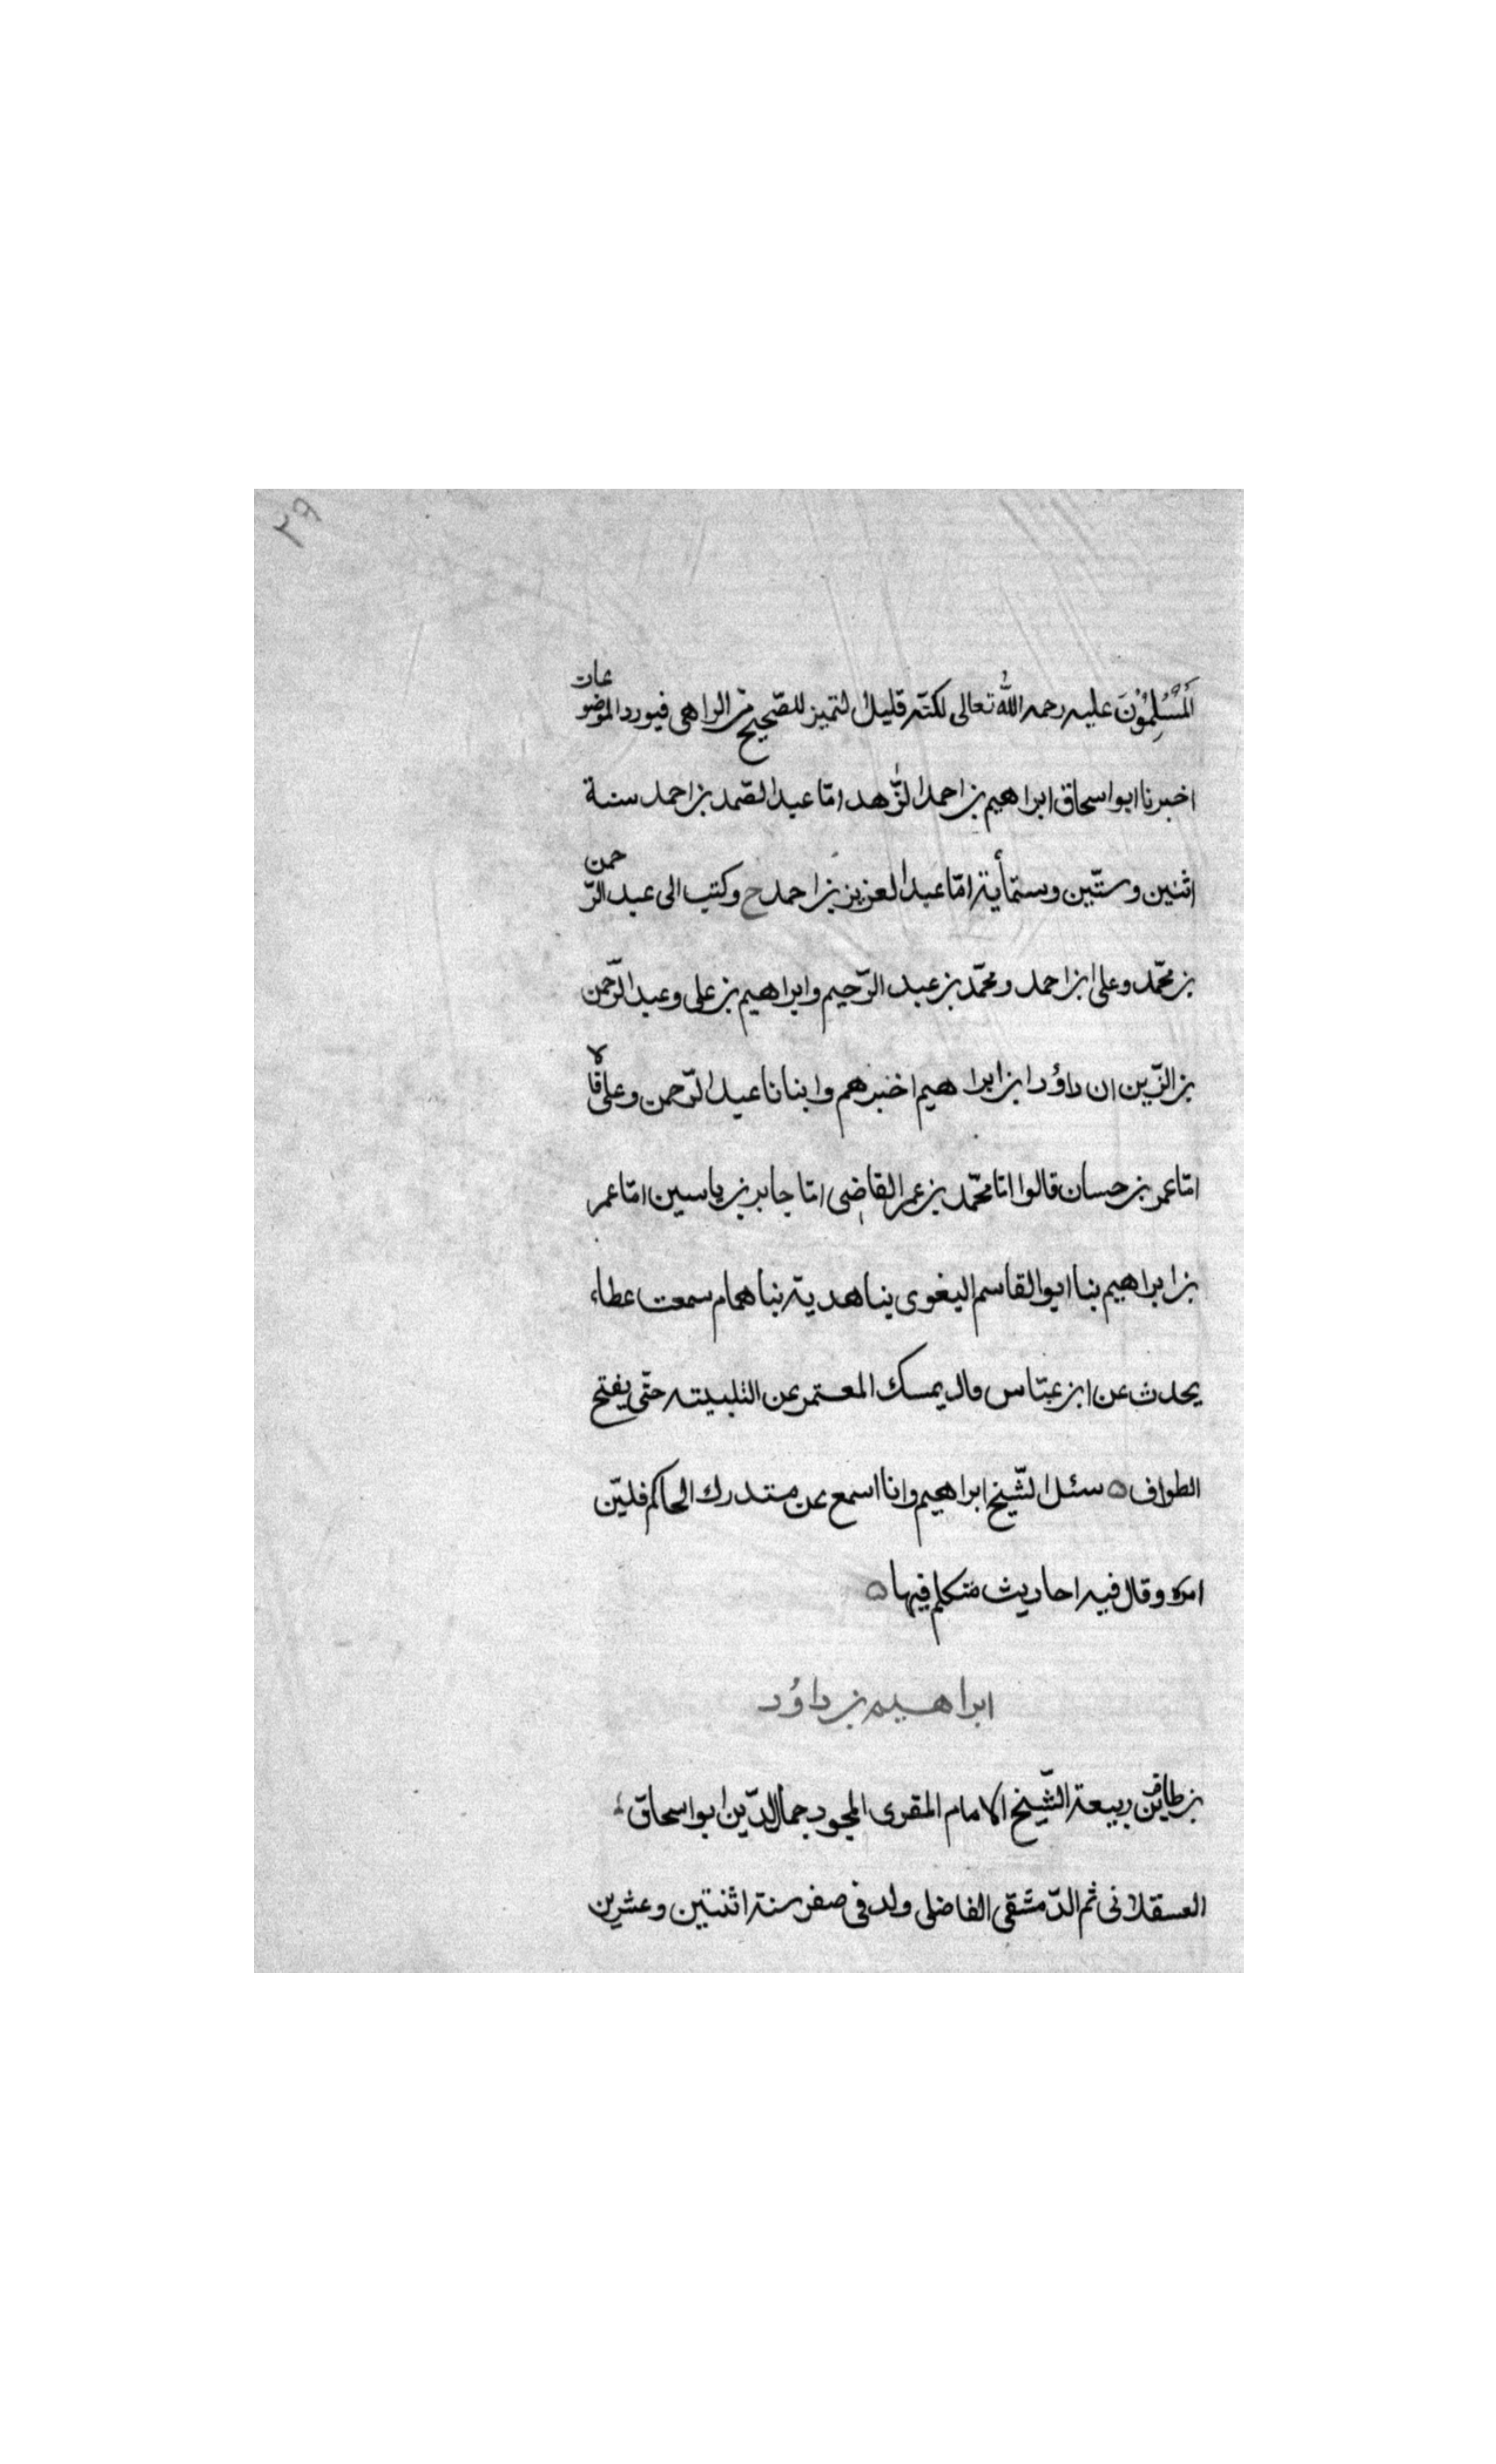 ٢٩
المُسْلِمُوْنَ عليه رحمه الله تعالى لكنّه قليل التميز للصّحيح من الواهى فيورد الموضوعات
اخبرنا ابو اسحاق ابراهيم بن احمد الزّهد انا عبد الصّمد بن احمد سنة
اثنين وستّين وستمأية انا عبد العزيز بن احمد ح وكتب الى عبد الرّحمن
بن محمّد وعلى ابن احمد ومحمّد بن عبد الرّحيم وابراهيم بن على وعبد الرّحمن
بن الزّين ان داؤد ابن ابراهيم اخبرهم وابنانا عبد الرّحمن وعلى قالا
انا عمر بن حسان قالوا انا محمّد بن عمر القاضى انا جابر بن ياسين انا عمر
بن ابراهيم بنا ابو القاسم البغوى بنا هدبة بنا همام سمعت عطاء
يحدث عن ابن عبّاس قال يمسك المعتمر عن التلبيته حتّى يفتح
الطواف ه سئل الشّيخ ابراهيم وانا اسمع عن مستدرك الحاكم فليّن
امره وقال فيه احاديث متكلم فيها ه
ابراهيم بن داؤد
بن ظافر بن ربيعة الشّيخ الامام المقرى المجود جمال الدّين ابو اسحاق
العسقلانى ثم الدّمشقى الفاضلى ولد فى صفر سنة اثنتين وعشرين